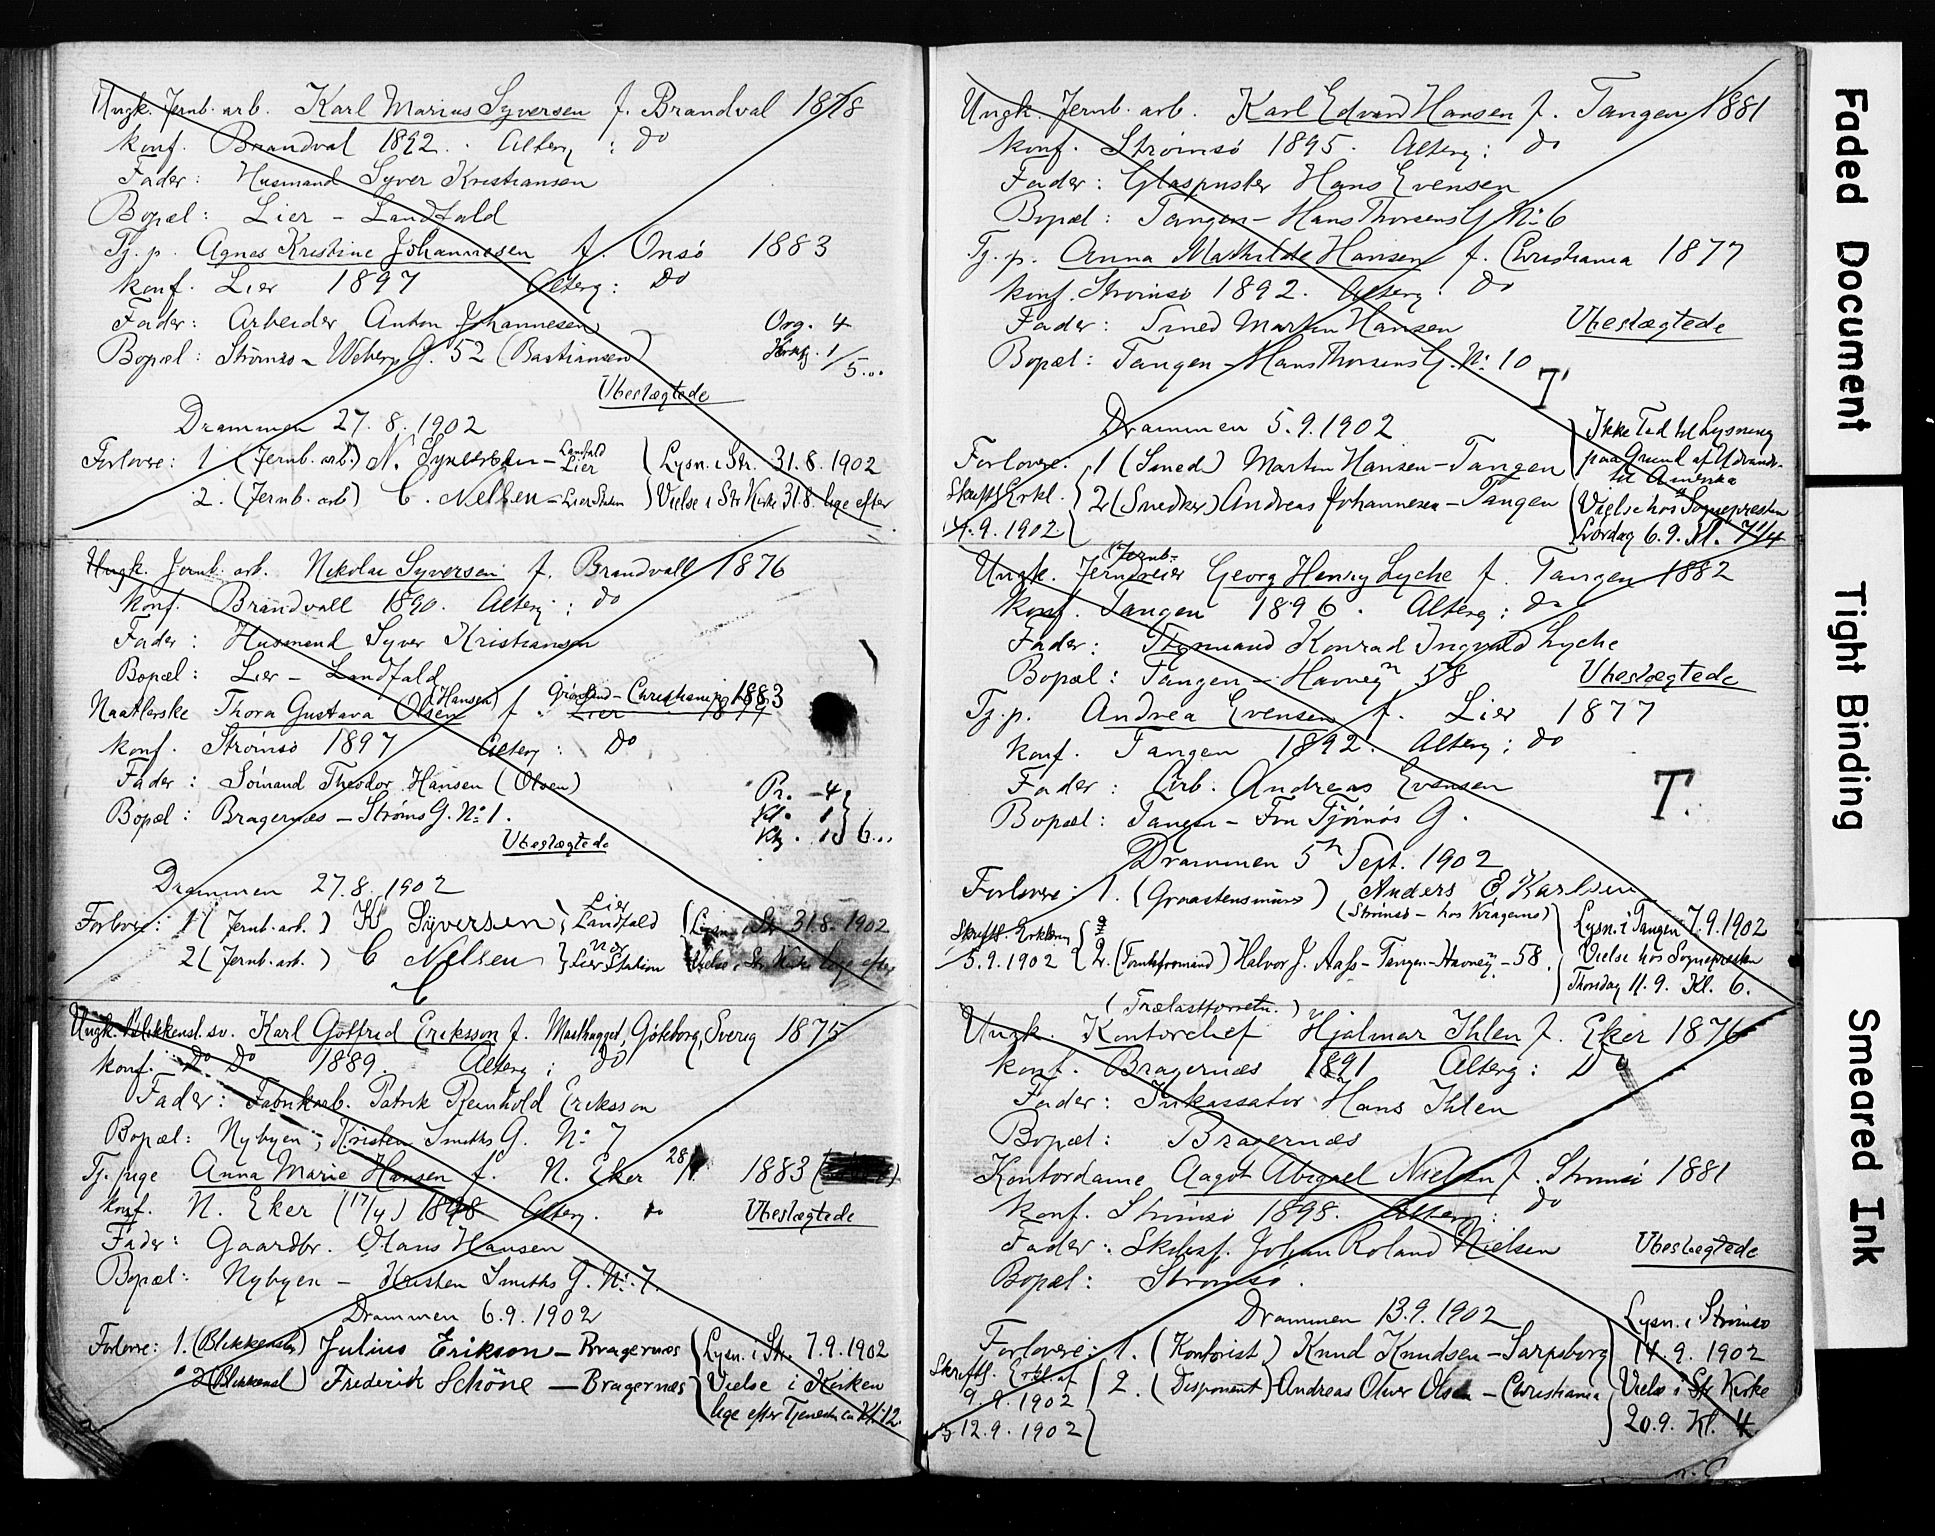 Ungk. Jernb. arb. Karl Marius Syversen f. Brandval 1878
konf. Brandval 1892. Alterg: do
Fader: Husmand Syver Kristiansen
Bopæl: Lier - Landfald
Tj. p. Agnes Kristine Johannesen f. Onsö 1883
konf. Lier 1897 Alterg: do
Fader: Arbeider Anton Johannesen
Org. 4
Bopæl: Strömsö - Webergs G. 52 (Bastiansen)
Kirketj. 1/5...
Ubeslægtede
Drammen 27.8.1902
Forlovere: 1 (Jernb. arb.) N. Syversen - Landfald Lier
2. (Jernb. arb) C. Nelsen - Lier Station
Lysn. i Str. 31.8.1902
Vielse i Str. Kirke 31.8. lige efter
Ungk. Jernb. arb. Nikolai Syversen f. Brandvall 1876
konf. Brandvall 1890. Alterg: do
Fader: Husmand Syver Kristiansen
Bopæl: Lier - Landfald
Naatlerske Thora Gustava Olsen (Hansen) f. Grönland - Christiania 1883
Lier 1879
konf. Strömsö 1897 Alterg: Do
Fader: Sömand Theodor Hansen (Olsen)
Bopæl: Bragernæs - Ströms G. No 1.
Pr. - 4
Kl. 1
Ktj. 1 } 6...
Ubeslægtede
Drammen 27.8.1902
Forlovere: 1 (Jernb. arb.) K Syversen } Lier Landfald
2 (Jernb. arb.) C Nelsen } nær Lier Station
Lysn. i Str. 31.8.1902
Vielse i Str. Kirke lige efter
Ungk. Blikkensl. sv. Karl Gottfrid Eriksson f. Masthugget, Göteborg, Sverig 1875
konf. Do Do 1889. Alterg: do
Fader: Fabrikarb. Patrik Reinhold Eriksson
Bopæl: Nybyen; Kristen Smiths G. No 7
Tj. pige Anna Marie Hansen f. N. Eker 28/ 1883
konf. N. Eker (17/4) 1898 Alterg. do
Ubeslægtede
Fader: Gaardbr. Olaus Hansen
Bopæl: Nybyen - Kristen Smiths G. No. 7.
Drammen 6.9.1902
Forlovere: 1. (Blikkensl.) Julius Erikson - Bragernæs
2 (Blikkensl) Frederik Schöne - Bragernæs
Lysn. i Str. 7.9.1902
Vielse i Kirken
lige efter Tjenesten ca Kl. 12.
Ungk. Jernb. arb. Karl Edvard Hansen f. Tangen 1881
konf. Strömsö 1895. Alterg: do
Fader: Glaspuster Hans Evensen
Bopæl: Tangen - Hans Thorsens G No 6
Tj. p. Anna Mathilde Hansen f. Christiania 1877
konf. Strömsö 1892. Alterg: do
Fader: Smed Martin Hansen
Ubeslægtede
Bopæl: Tangen - Hans Thorsens G. No 10
T
Drammen 5.9.1902
Forlovere: 1 (Smed) Martin Hansen - Tangen
Skriftl. Erkl. 4.9.1902
2 (Snedker) Andreas Johannesen - Tangen
Ikke Tid til Lysning
paa Grund af Udvandr.
til Amerika
Vielse hos Sognepresten
Lördag 6.9. Kl. 7 1/4
(Jernb-
Ungk. Jerndreier Georg Henry Lyche f. Tangen 1882
konf. Tangen 1896. Alterg: do
Fader: Konrad Ingvald Lyche
Bopæl: Tangen - Havnegn 58
Ubeslægtede
Tj. p. Andrea Evensen f. Lier 1877
konf. Tangen 1892. Alterg: do
Fader: Arb. Andreas Evensen
T.
Bopæl: Tangen - Fru Tjömös G.
Drammen 5n Sept. 1902
Forlovere: 1. (Graastensminör) Anders E Karlsen
(Strömsö - hos Krägenes)
Skriftl. Erklæring 5.9.1902
2. (Tomteformand) Halvor J. Aass - Tangen - Havneg. - 58.
Lysn. i Tangen 7.9.1902
Vielse hos Sognepresten
Thorsdag 11.9. Kl. 6.
(Trælastforretn.)
Ungk. Kontorchef Hjalmar Ihlen f. Eker 1876
konf. Bragernæs 1891 Alterg: Do
Fader: Inkassator Hans Ihlen
Bopæl: Bragernæs
Kontordame Aagot Abigael Nielsen f. Strömsö 1881
konf. Strömsö 1898. Alterg: do
Fader: Skibsf. Johan Roland Nielsen
Ubeslægtede
Bopæl: Strömsö.
Drammen 13.9.1902
Forlovere: 1. (Kontorist) Knud Knudsen - Sarpsborg
Skriftl. Erkl. af 9.9.1902
& 12.9.1902
2. (Disponent) Andreas Oliver Olsen - Christiania
Lysn. i Strömsö
14.9.1902
Vielse i Str. Kirke
20.9. Kl. 4.
Faded Document
Tight Binding
Smeared Ink